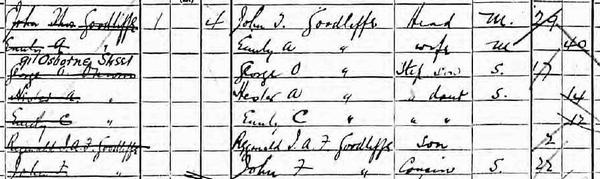 John Thos Goodliffe 1 4 John T. Goodliffe Head M. 29
Emily A " Emily A " wife M 40
91 Osborne Street
George O George O " Step son S. 17
Hester A " Hester A " " daur S. 14
Emily C " Emily C " " " 12
Reginald J. A. F Goodliffe Reginald J. A. F Goodliffe Son 2
John F " John F " Cousin S. 22